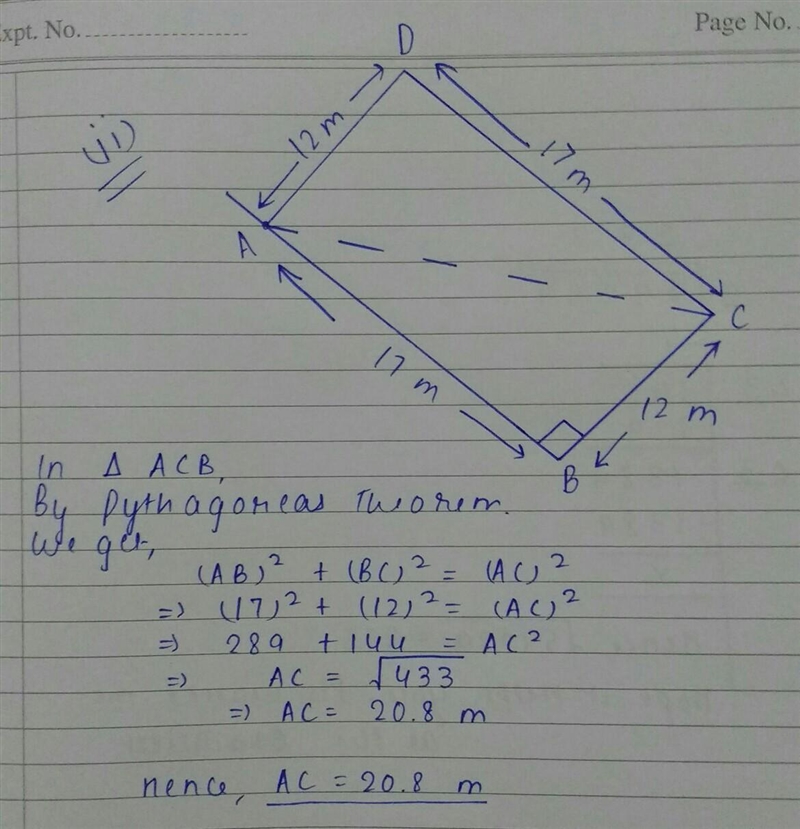 Expt. No.
Page No.
D
ii)
12 m
17 m
A
C
17 m
12 m
B
In Δ ACB,
By Pythagoreas Theorem.
We get,
(AB)² + (BC)² = (AC)²
=> (17)² + (12)² = (AC)²
=> 289 + 144 = AC²
=> AC = √433
=> AC = 20.8 m
nence, AC = 20.8 m